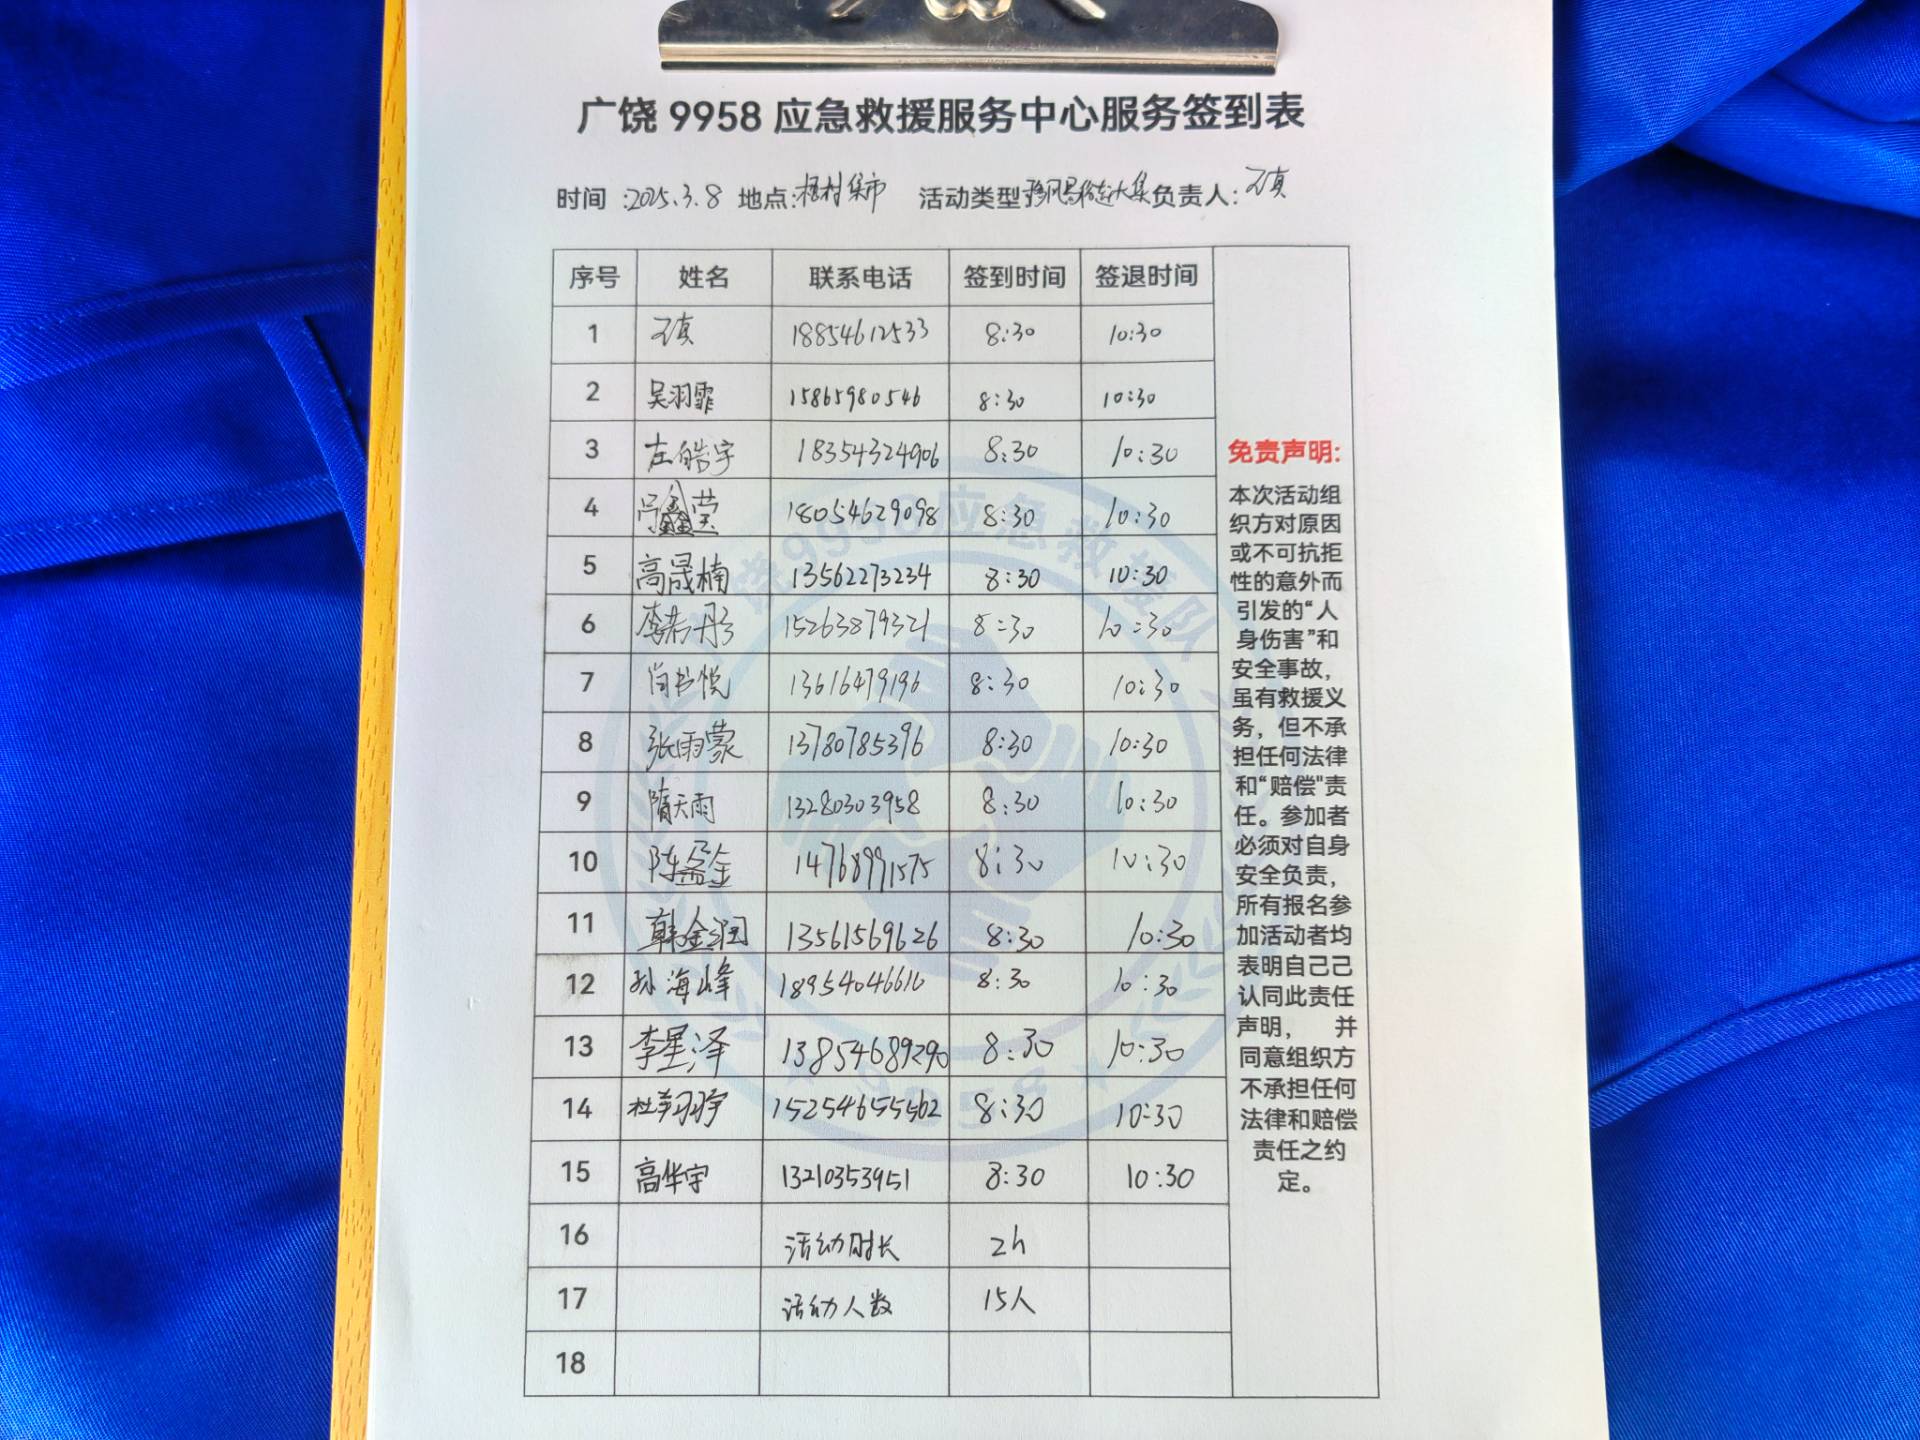 广饶 9958 应急救援服务中心服务签到表
时间：2025.3.8 地点：梧村集市 活动类型 大集 负责人：王真
序号 姓名 联系电话 签到时间 签退时间
1 王真 18854612533 8:30 10:30
2 吴羽霏 15865980546 8:30 10:30
3 左皓宇 18354324906 8:30 10:30
4 吕鑫莹 18054629098 8:30 10:30
5 高晟楠 13562273234 8:30 10:30
6 李若彤 15263879321 8:30 10:30
7 尚书悦 13616479196 8:30 10:30
8 张雨蒙 13780785396 8:30 10:30
9 隋天雨 13280303958 8:30 10:30
10 陈盈金 14768991575 8:30 10:30
11 韩金润 13561569626 8:30 10:30
12 孙海峰 18954046616 8:30 10:30
13 李星泽 13854689290 8:30 10:30
14 杜翔宇 15254655562 8:30 10:30
15 高华宇 13210353951 8:30 10:30
16 活动时长 2h
17 活动人数 15人
18
免责声明:
本次活动组
织方对原因
或不可抗拒
性的意外而
引发的“人
身伤害”和
安全事故，
虽有救援义
务，但不承
担任何法律
和“赔偿"责
任。参加者
必须对自身
安全负责，
所有报名参
加活动者均
表明自己己
认同此责任
声明， 并
同意组织方
不承担任何
法律和赔偿
责任之约
定。
广饶9958应急救援队
9958